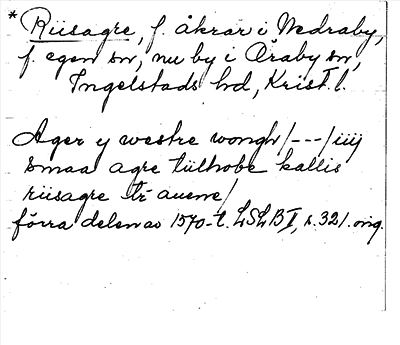 * Riisagre, f. åkrar i Nedraby,
f. egen sn, nu by i Öraby sn,
Ingelstads hd, Krist. l.
Ager y westre wongh /---/ iiij
smaa agre tilhobe kallis
riisagre tr auene /
förra delen av 1570-t. LSLB I, s. 321. orig.